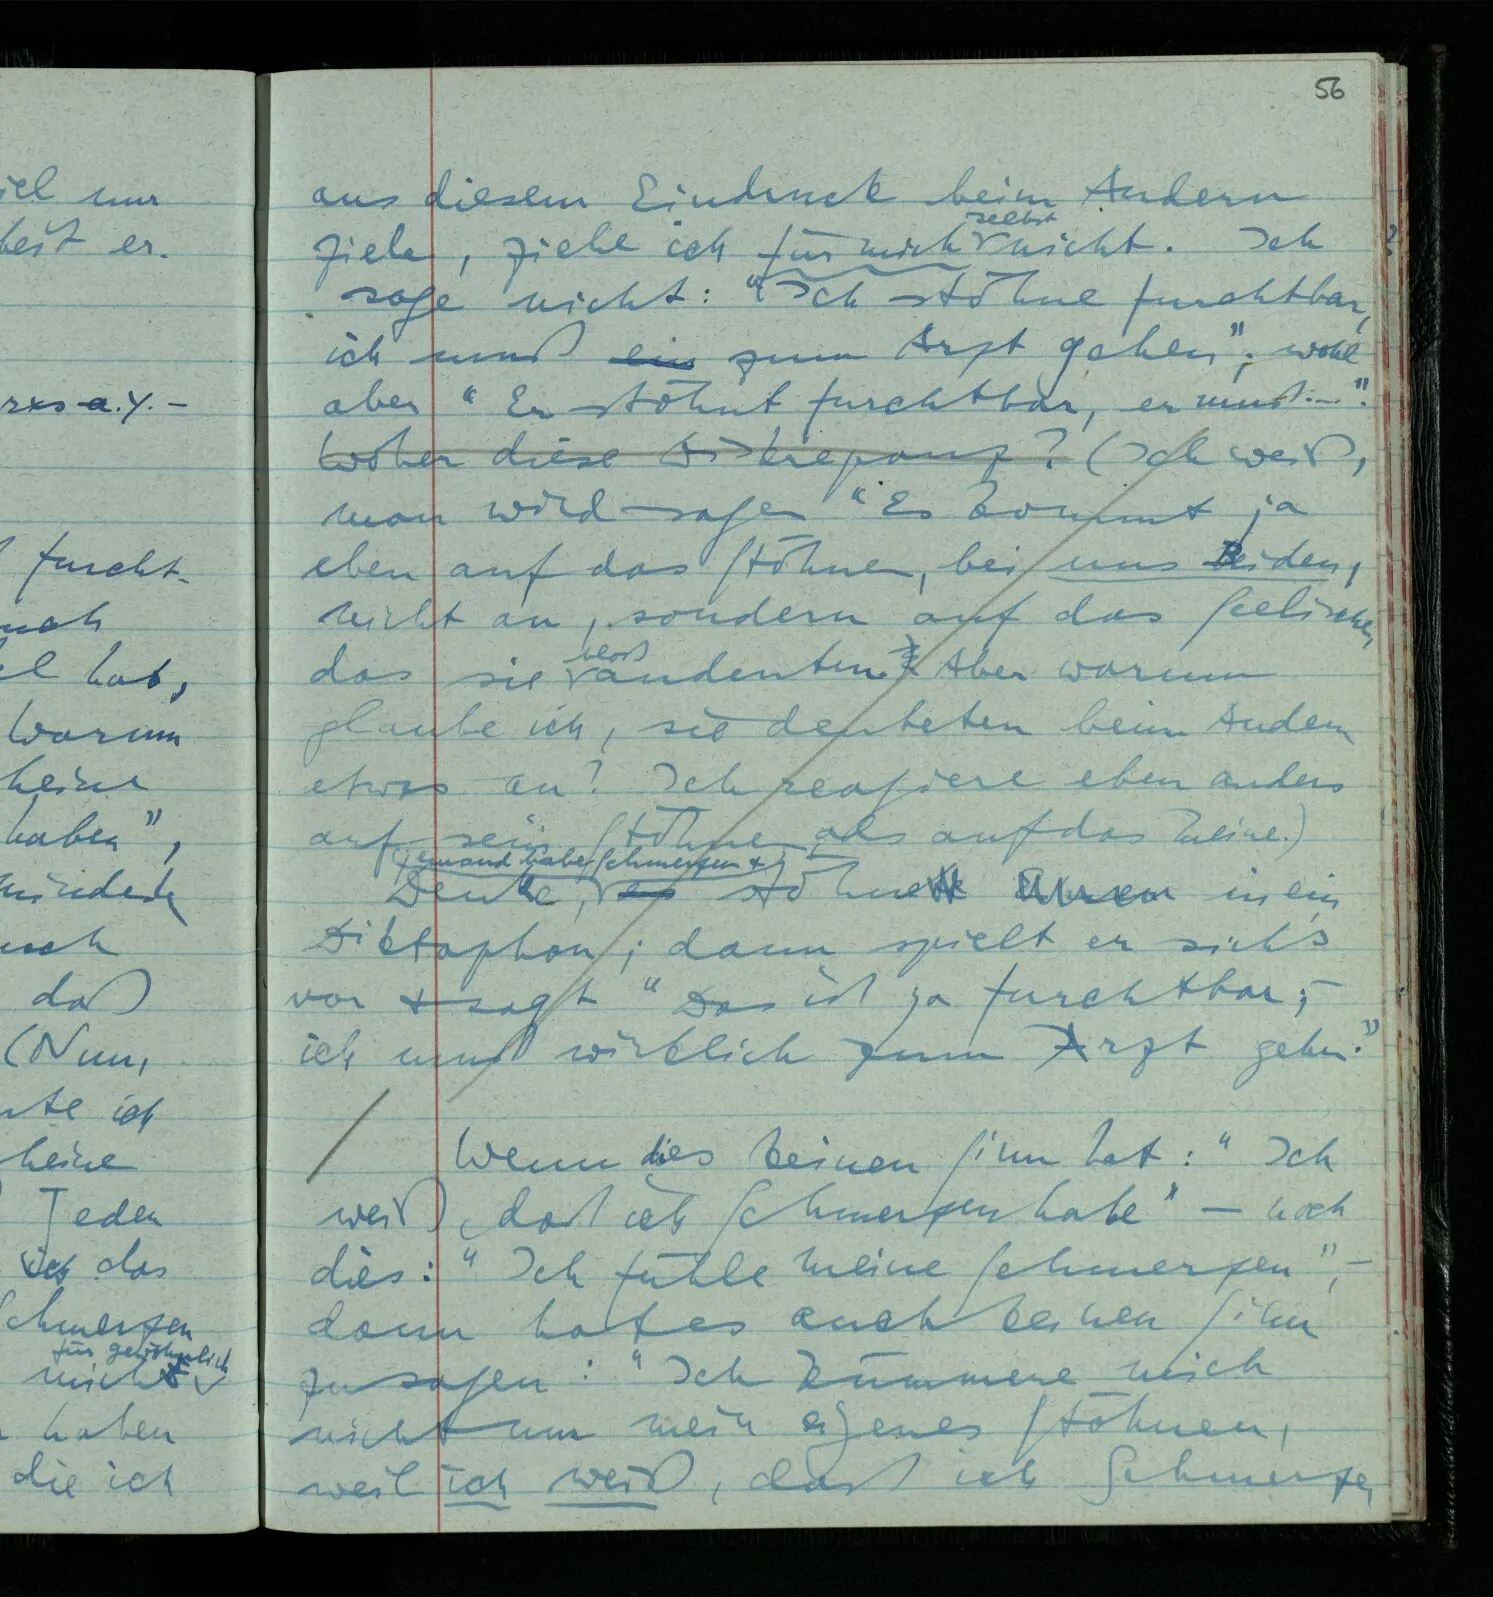 56
iel nur
heit er.
a.Y. –
furcht-
auch
hat,
Warum
keine
haben",
mindeste
auch
daß
(Nun,
ich
keine
Jeden
ich das
Schmerzen
für gewöhnlich
nicht
haben
die ich
aus diesem Eindruck beim Andern
selbst
ziehe, ziehe ich für mich nicht. Ich
sage nicht: "Ich stöhne furchtbar,
ich muß ein zum Arzt gehen"; wohl
aber "Er stöhnt furchtbar, er muß ...".
Woher diese Diskrepanz? (Ich weiß,
man wird sagen "Es kommt ja
eben auf das Stöhnen, bei uns Beiden,
nicht an, sondern auf das Seelische,
bloß
das sie andeuten." Aber warum
glaube ich, sie deuteten beim Andern
etwas an? Ich reagiere eben anders
auf sein Stöhnen als auf das Meine.)
jemand habe Schmerzen &
Denke, er stöhne in ein
Diktaphon; dann spielt er sich's
vor & sagt "Das ist ja furchtbar; –
ich muß wirklich zum Arzt gehn."
/ Wenn dies keinen Sinn hat: "Ich
weiß, daß ich Schmerzen habe" – noch
dies: "Ich fühle meine Schmerzen", –
dann hat es auch keinen Sinn
zu sagen: "Ich kümmere mich
nicht um mein eigenes Stöhnen,
weil ich weiß, daß ich Schmerzen